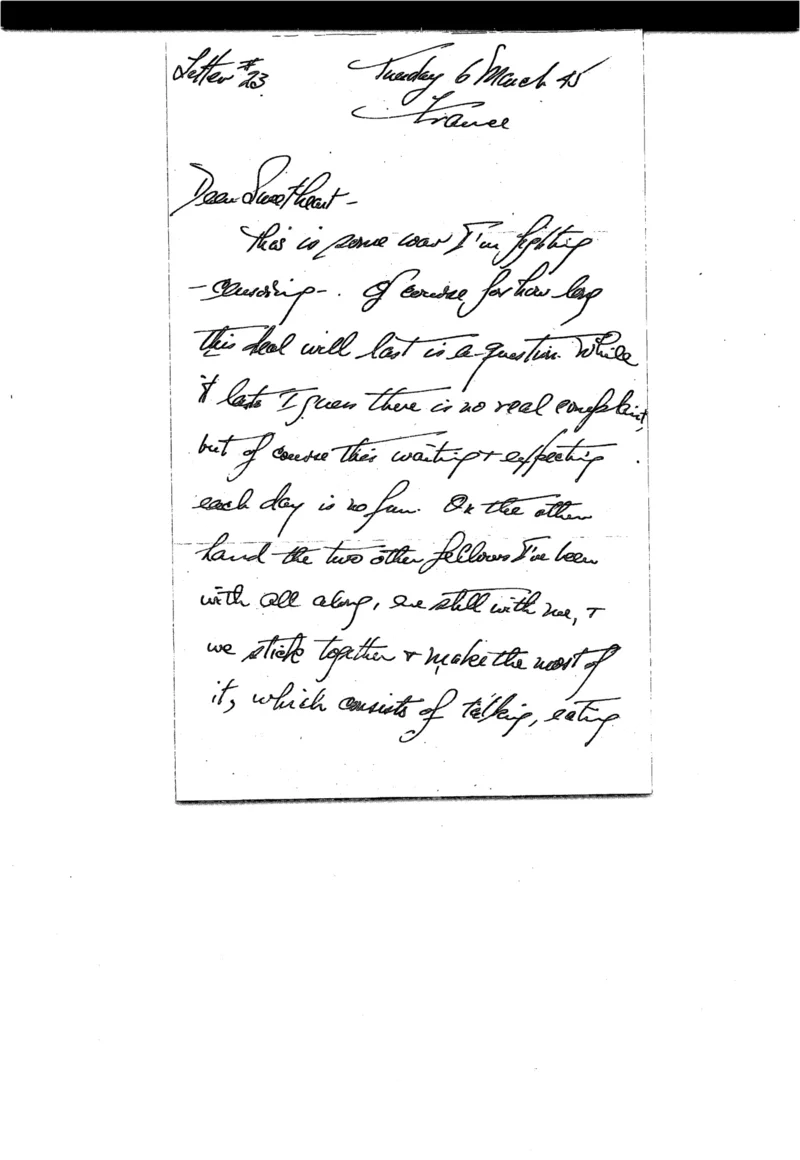 Letter # 23
Tuesday 6 March 45
France
Dear Sweetheart -
This is some war I'm fighting
- censoring -. Of course, for how long
this deal will last is a question. While
it lasts I guess there is no real complaint,
but of course this waiting + expecting
each day is no fun. On the other
hand the two other fellows I've been
with all along, are still with me, +
we stick together + make the most of
it, which consists of talking, eating